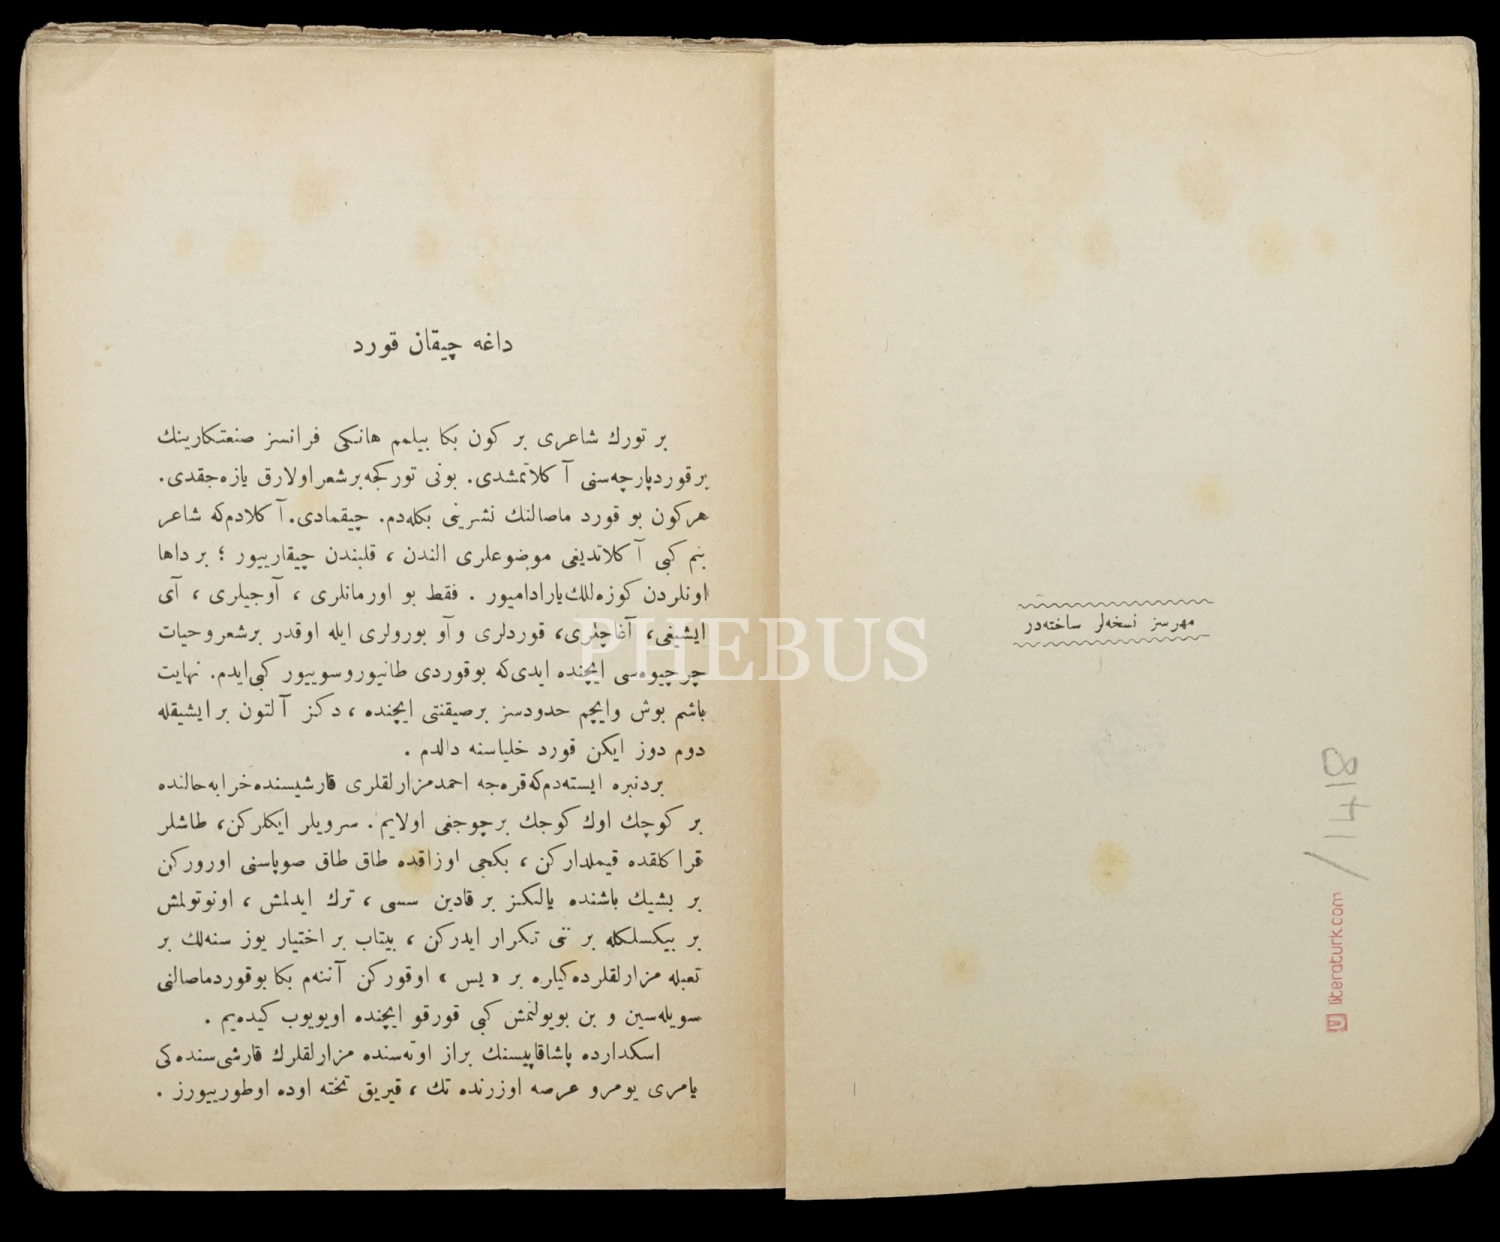 مهرسز نسخه‌لر ساخته‌در
/1418
literaturk.com
PHEBUS
داغه چیقان قورد
بر تورك شاعری بر کون بکا بیلمم هانکی فرانسز صنعتکارینك
بر قورد پارچه‌سنی آکلاتمشدی. بونی تورکجه بر شعر اولارق یازه‌جقدی.
هرکون بو قورد ماصالنك نشرینی بکله‌دم. چیقمادی. آکلادم‌که شاعر
بنم کبی آکلاتدیغی موضوعلری الندن ، قلبندن چیقارییور ؛ بر داها
اونلردن کوزه‌للك یارادامیور . فقط بو اورمانلری ، آوجیلری ، آی
ایشیغی، آغاچلری، قوردلری و آو بورولری ایله اوقدر بر شعر و حیات
چرچیوه‌سی ایچنده ایدی‌که بو قوردی طانیور و سوییور کبی ایدم. نهایت
باشم بوش و ایچم حدودسز بر صیقنتی ایچنده ، دکز آلتون بر ایشیقله
دوم دوز ایکن قورد خلیاسنه دالدم .
بردنبره ایسته‌دم‌که قره‌جه احمد مزارلقلری قارشیسنده خرابه حالنده
بر کوچك اوك کوجك بر چوجغی اولایم . سرویلر ایکلرکن، طاشلر
قراکلقده قیملدارکن ، بکجی اوزاقده طاق طاق صوپاسنی اورورکن
بر بشیك باشنده یالکنز بر قادین سسی ، ترك ایدلمش ، اونوتولمش
بر بیکسلکله بر ننی تکرار ایدرکن ، بیتاب بر اختیار یوز سنه‌لك بر
تعبله مزارلقلرده‌کیلره بر « یس » اوقورکن آننه‌م بکا بو قورد ماصالنی
سویله‌سین و بن بویولنمش کبی قورقو ایچنده اویویوب کیده‌یم .
اسکدارده پاشاقاپیسنك براز اوته‌سنده مزارلقلرك قارشی‌سنده‌کی
یامری یومرو عرصه اوزرنده تك ، قیریق تخته اوده اوطورییورز .